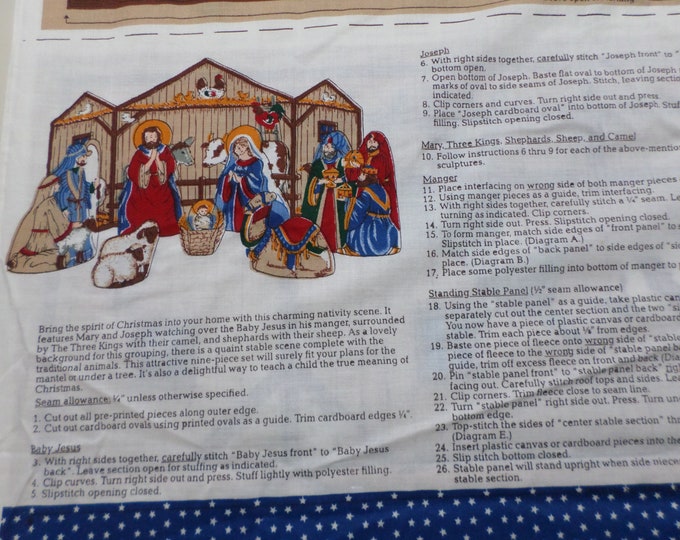 Bring the spirit of Christmas into your home with this charming nativity scene. It
features Mary and Joseph watching over the Baby Jesus in his manger, surrounded
by The Three Kings with their camel, and shepherds with their sheep. As a lovely
background for this grouping, there is a quaint stable scene complete with the
traditional animals. This attractive nine-piece set will surely fit your plans for the
mantel or under a tree. It's also a delightful way to teach a child the true meaning of
Christmas.
Seam allowance: ¼" unless otherwise specified.
1. Cut out all pre-printed pieces along outer edge.
2. Cut out cardboard ovals using printed ovals as a guide. Trim cardboard edges ¼".
Baby Jesus
3. With right sides together, carefully stitch "Baby Jesus front" to "Baby Jesus
back". Leave section open for stuffing as indicated.
4. Clip curves. Turn right side out and press. Stuff lightly with polyester filling.
5. Slipstitch opening closed.
Joseph
6. With right sides together, carefully stitch "Joseph front" to "
bottom open.
7. Open bottom of Joseph. Baste flat oval to bottom of Joseph
marks of oval to side seams of Joseph. Stitch, leaving section
indicated.
8. Clip corners and curves. Turn right side out and press.
9. Place "Joseph cardboard oval" into bottom of Joseph. Stuff
filling. Slipstitch opening closed.
Mary, Three Kings, Shephards, Sheep, and Camel
10. Follow instructions 6 thru 9 for each of the above-mentio
sculptures.
Manger
11. Place interfacing on wrong side of both manger pieces
12. Using manger pieces as a guide, trim interfacing.
13. With right sides together, carefully stitch a ¼" seam. Le
turning as indicated. Clip corners.
14. Turn right side out. Press. Slipstitch opening closed.
15. To form manger, match side edges of "front panel" to s
Slipstitch in place. (Diagram A.)
16. Match side edges of "back panel" to side edges of "sid
place. (Diagram B.)
17. Place some polyester filling into bottom of manger to
Standing Stable Panel (½" seam allowance)
18. Using the "stable panel" as a guide, take plastic can
separately cut out the center section and the two "si
You now have a piece of plastic canvas or cardboard
stable. Trim each piece about ⅛" from edges.
19. Baste one piece of fleece onto wrong side of "stable
piece of fleece to the wrong side of "stable panel ba
guide, trim off excess fleece on front and back (Dia
20. Pin "stable panel front" to "stable panel back" righ
facing out. Carefully stitch roof tops and sides. Lea
21. Clip corners. Trim fleece close to seam line.
22. Turn "stable panel" right side out. Press. Turn und
bottom edge.
23. Top-stitch the sides of "center stable section" thr
(Diagram E.)
24. Insert plastic canvas or cardboard pieces into the
25. Slip stitch bottom closed.
26. Stable panel will stand upright when side pieces
stable section.